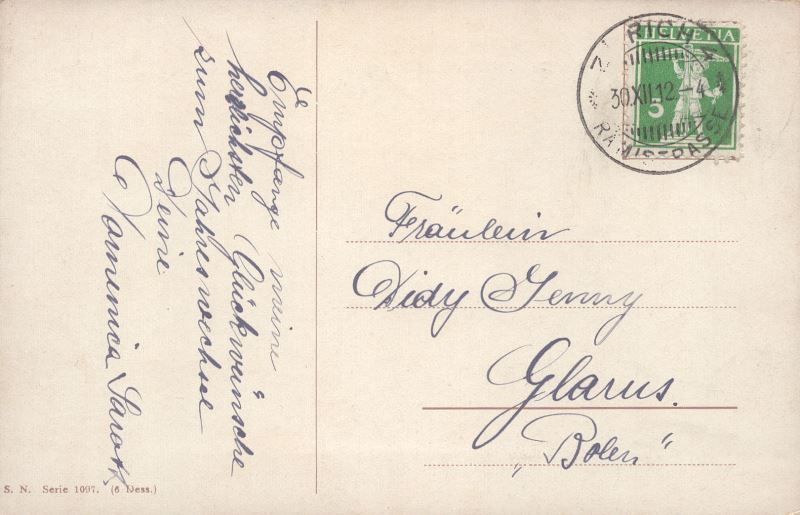 Empfange meine
herzlichsten Glückwünsche
zum Jahreswechsel
Deine
Domenica
HELVETIA
5
ZÜRICH 4
30.XII.12-4
RÄMISTRASSE
Fräulein
Didy Jenny
Glarus.
„Bolen"
S. N. Serie 1097. (6 Dess.)